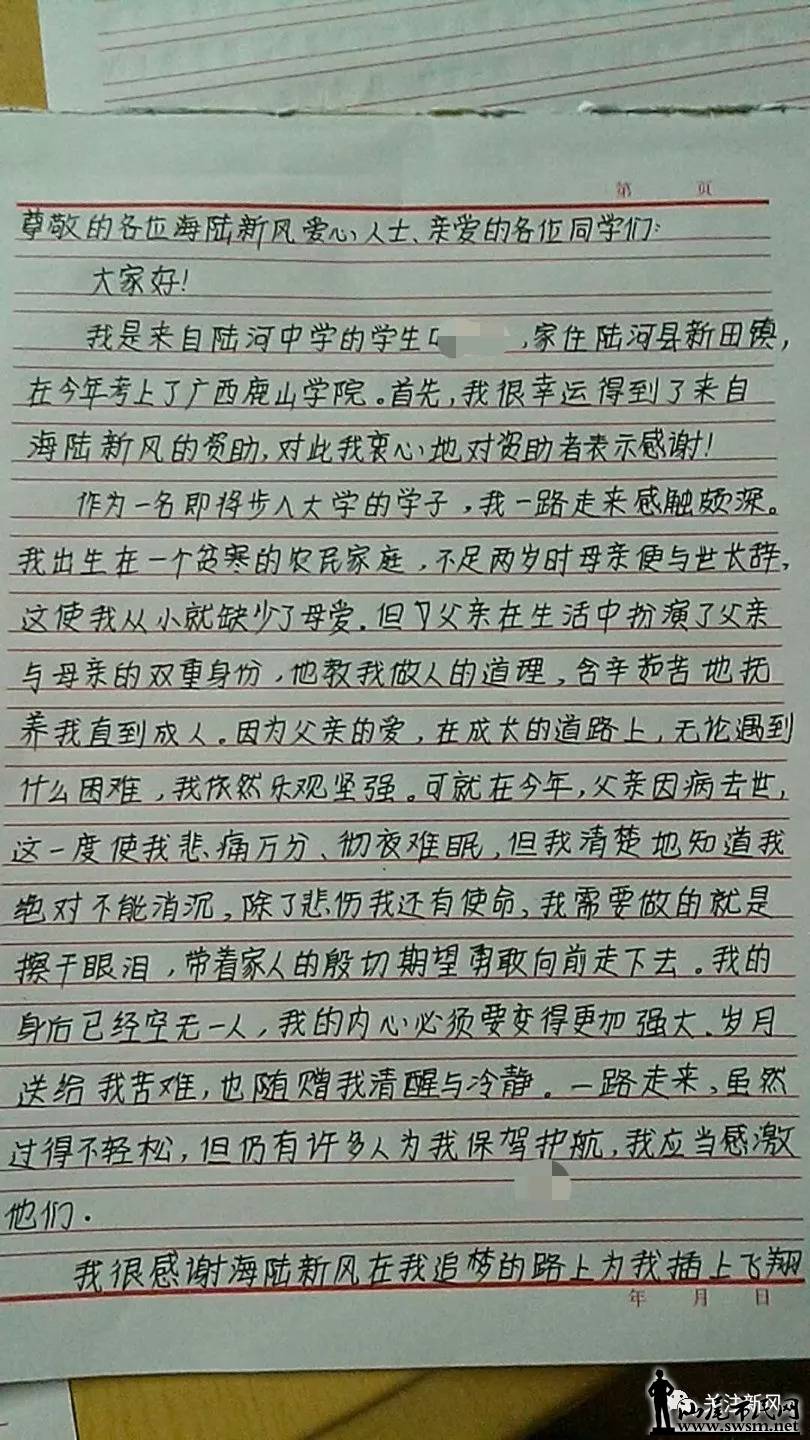 第 页
尊敬的各位海陆新风爱心人士、亲爱的各位同学们:
大家好!
我是来自陆河中学的学生 ,家住陆河县新田镇,
在今年考上了广西鹿山学院。首先,我很幸运得到了来自
海陆新风的资助,对此我衷心地对资助者表示感谢!
作为一名即将步入大学的学子,我一路走来感触颇深。
我出生在一个贫寒的农民家庭,不足两岁时母亲便与世长辞,
这使我从小就缺少了母爱.但父亲在生活中扮演了父亲
与母亲的双重身份,他教我做人的道理,含辛茹苦地抚
养我直到成人。因为父亲的爱,在成长的道路上,无论遇到
什么困难,我依然乐观坚强。可就在今年,父亲因病去世,
这一度使我悲痛万分、彻夜难眠,但我清楚地知道我
绝对不能消沉,除了悲伤我还有使命,我需要做的就是
擦干眼泪,带着家人的殷切期望勇敢向前走下去。我的
身后已经空无一人,我的内心必须要变得更加强大、岁月
送给我苦难,也随赠我清醒与冷静。一路走来,虽然
过得不轻松,但仍有许多人为我保驾护航,我应当感激
他们.
我很感谢海陆新风在我追梦的路上为我插上飞翔
年 月 日
关注新风
汕尾市民网
www.swsm.net